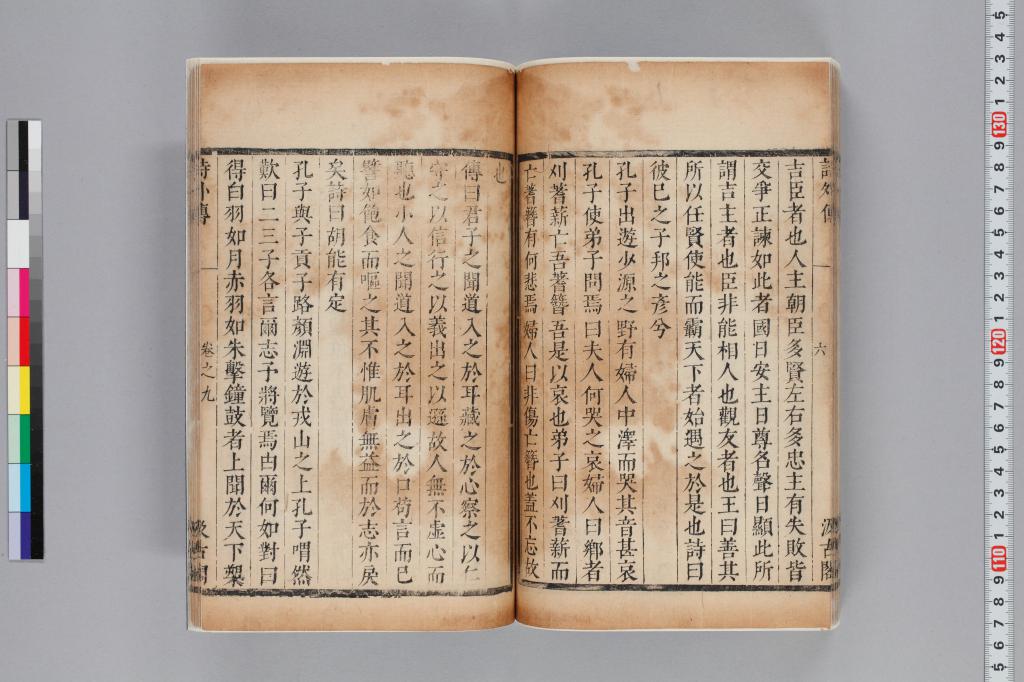 詩外傳
六
汲古閣
吉臣者也人主朝臣多賢左右多忠主有失敗皆
交爭正諫如此者國日安主日尊名聲日顯此所
謂吉主者也臣非能相人也觀友者也王曰善其
所以任賢使能而霸天下者始遇之於是也詩曰
彼已之子邦之彥兮
孔子出遊少源之野有婦人中澤而哭其音甚哀
孔子使弟子問焉曰夫人何哭之哀婦人曰鄉者
刈蓍薪亡吾蓍簪吾是以哀也弟子曰刈蓍薪而
亡蓍簪有何悲焉婦人曰非傷亡簪也蓋不忘故
也
傳曰君子之聞道入之於耳藏之於心察之以仁
守之以信行之以義出之以遜故人無不虛心而
聽也小人之聞道入之於耳出之於口苟言而已
譬如飽食而嘔之其不惟肌膚無益而於志亦戾
矣詩曰胡能有定
孔子與子貢子路顏淵遊於戎山之上孔子喟然
歎曰二三子各言爾志予將覽焉由爾何如對曰
得白羽如月赤羽如朱擊鐘鼓者上聞於天下槊
詩外傳
卷之九
汲古閣
130
120
110